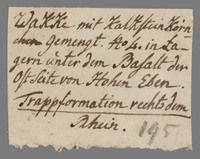 Wakke mit Kalkstein Körn
chen gemengt. No 4. in La-
gern unter dem Basalt der
Ostseite von Hohen Eben.
Trappformation rechts dem
Rhein.
195